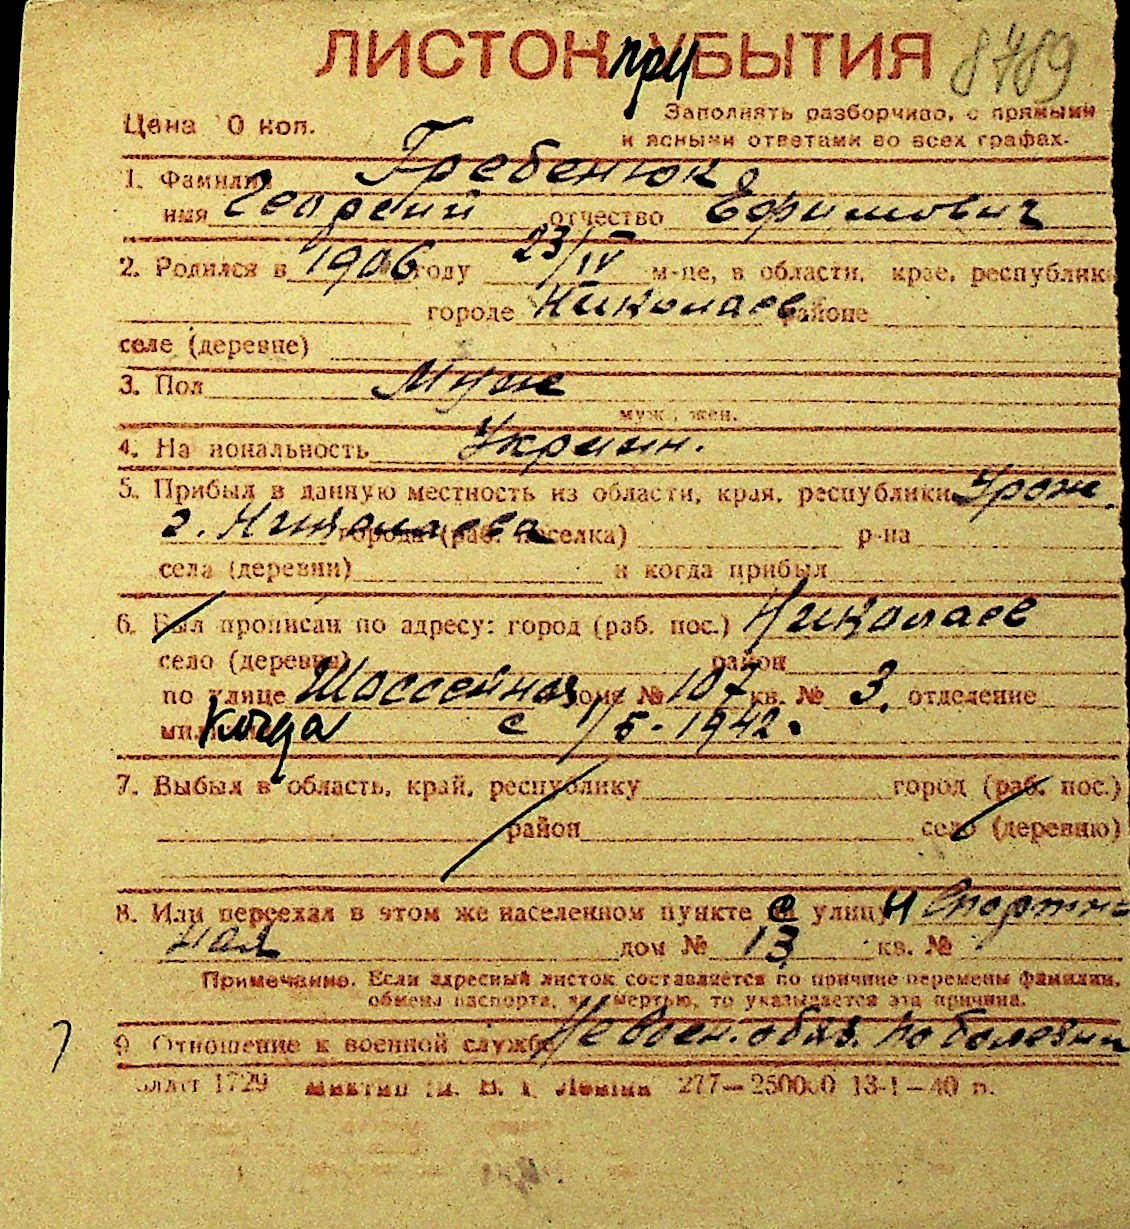 ЛИСТОК при УБЫТИЯ 8789
Цена 0 коп.
Заполнять разборчиво, с прямыми
и ясными ответами во всех графах.
1. Фамилия Гребенюк
имя Георгий отчество Ефимович
2. Родился в 1906 году 23/IV м-це, в области, крае, республике
городе Николаев районе
селе (деревне)
3. Пол Муж
муж., жен.
4. На иональность Украин.
5. Прибыл в данную местность из области, края, республики Урож.
г. Николаева города (раб. поселка) р-на
села (деревни) и когда прибыл
6. Был прописан по адресу: город (раб. пос.) Николаев
село (деревня) район
по улице Шоссейная доме № 107 кв. № 3, отделение
Когда с 1/5-1942.
7. Выбыл в область, край, республику город (раб. пос.)
район село (деревню)
8. Или переехал в этом же населенном пункте с улицы Н Спортив-
ная дом № 13 кв. №
Примечание. Если адресный листок составляется по причине перемены фамилии,
обмена паспорта, смертью, то указывается эта причина.
9 Отношение к военной службе Не воен. обяз. по болезни
1729 277—250000 13-1-40 г.